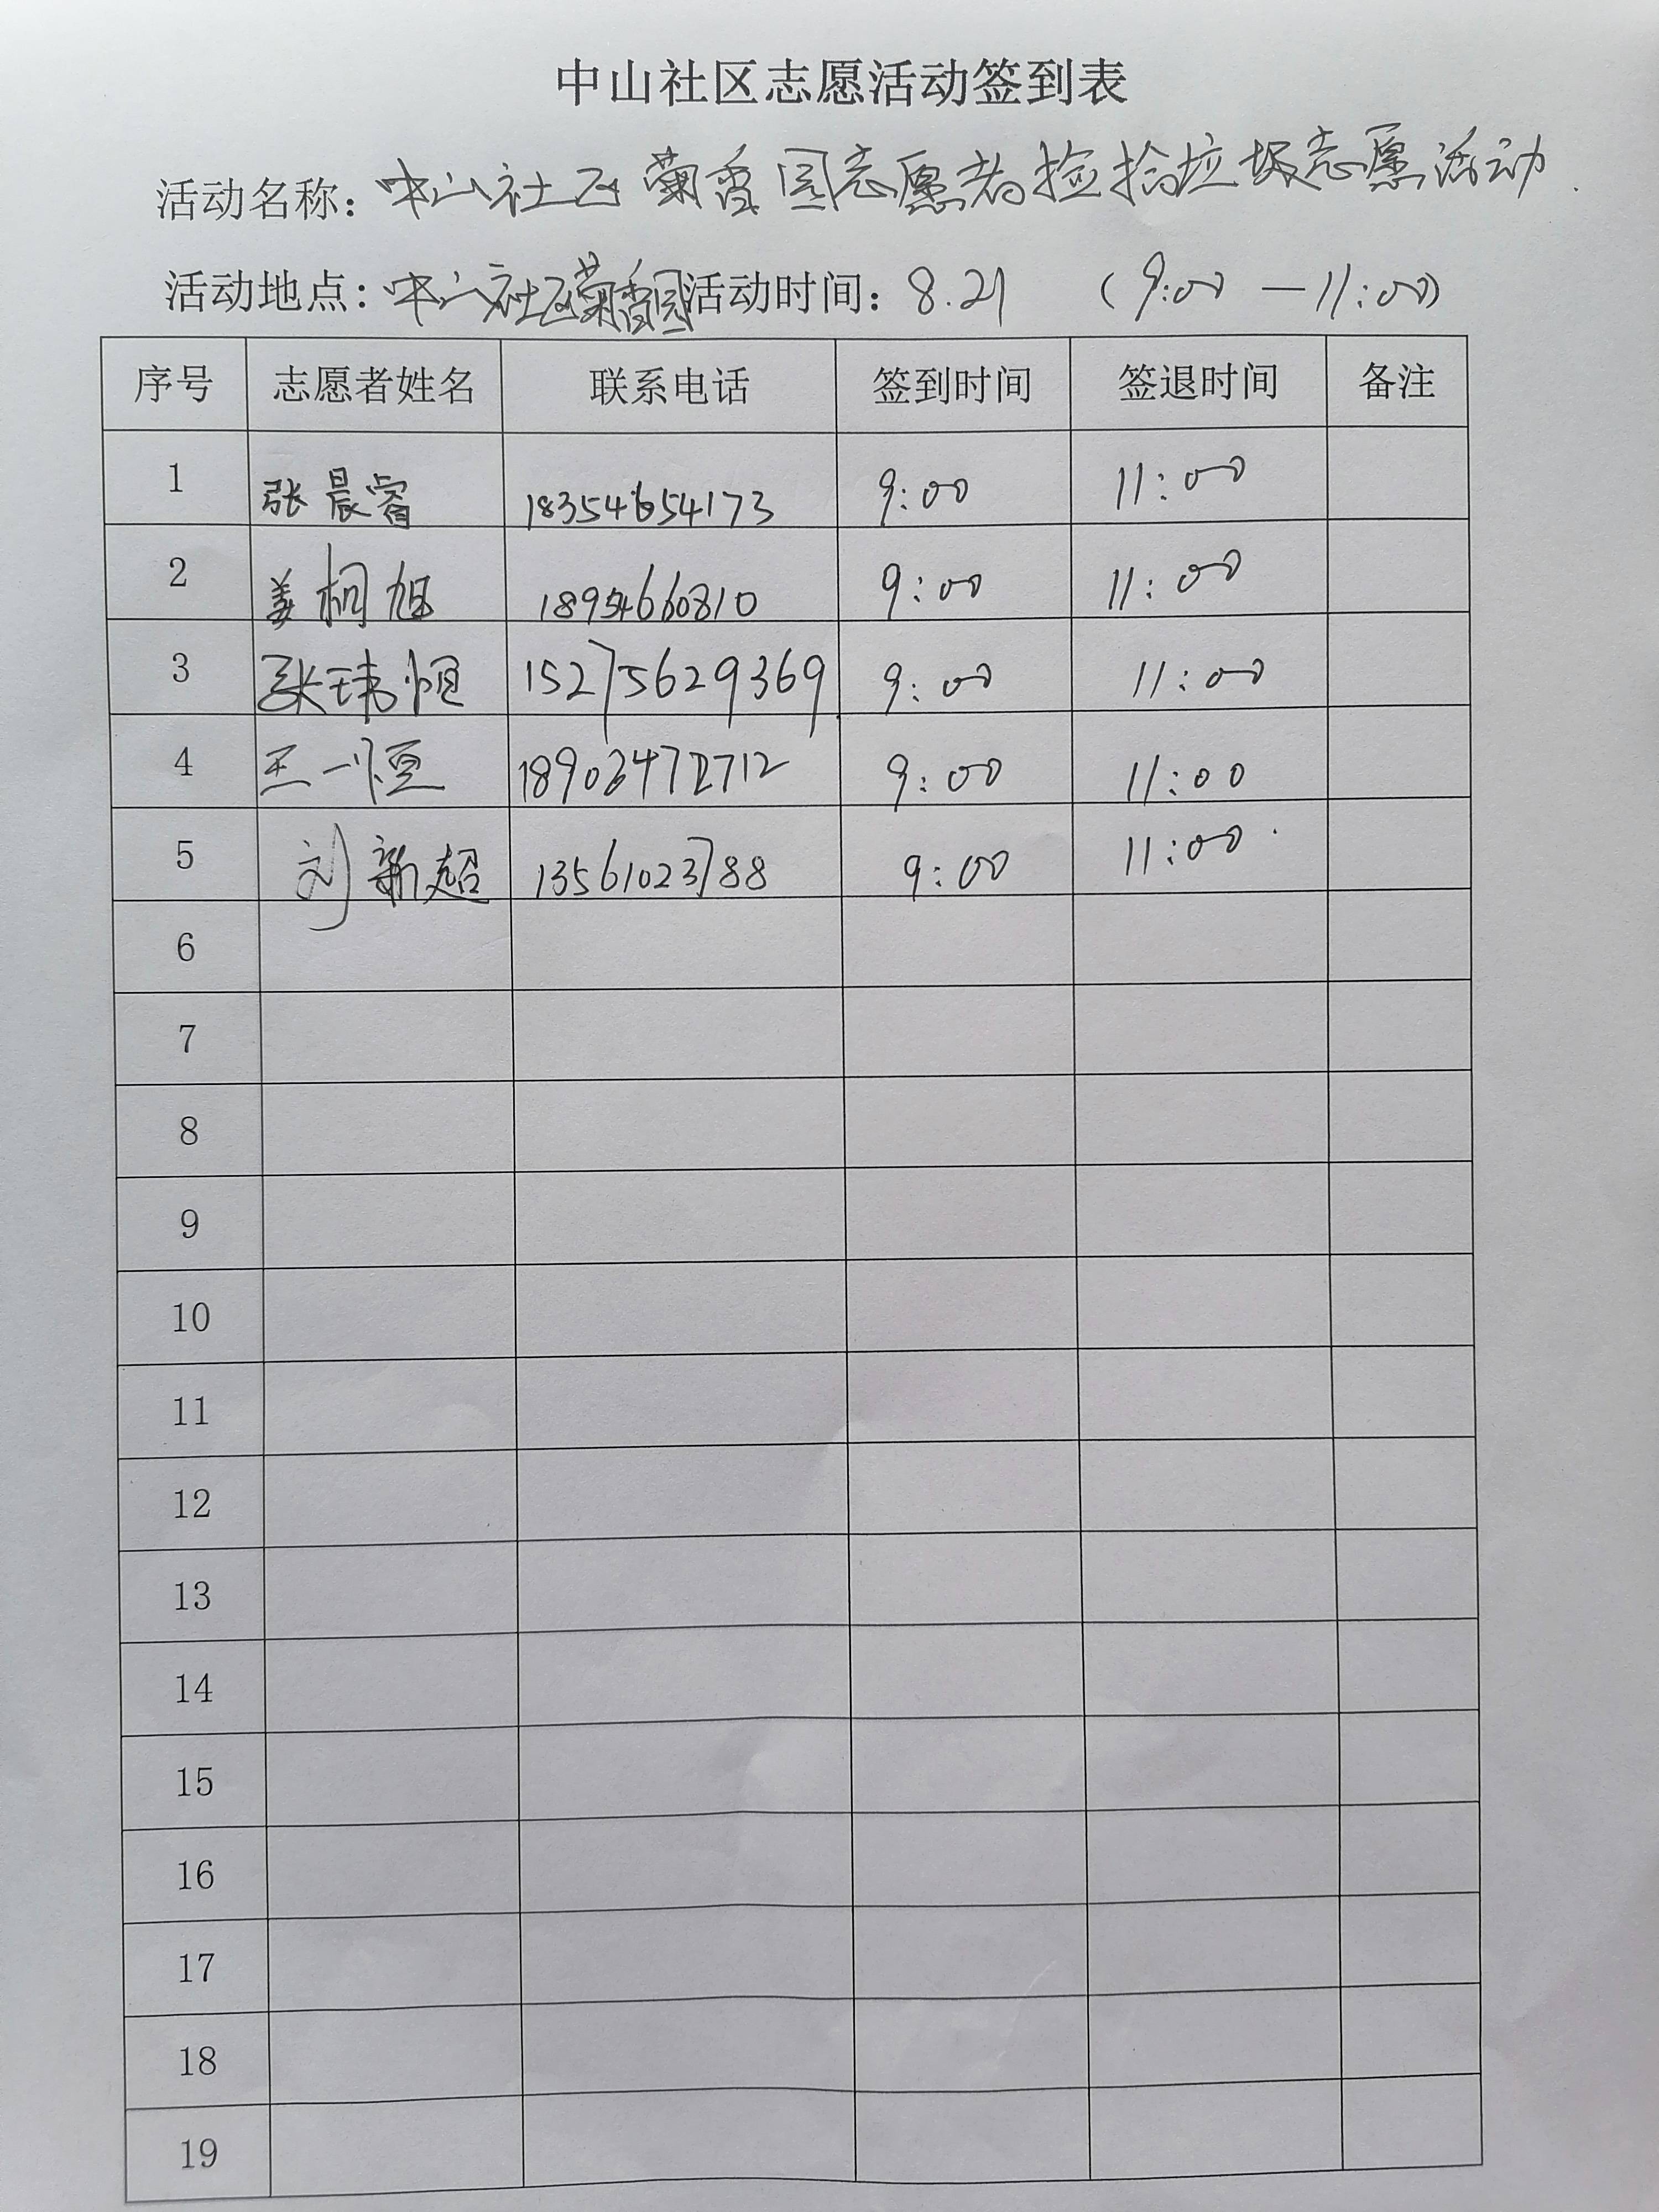 中山社区志愿活动签到表
活动名称：中山社区菊香园志愿者捡拾垃圾志愿活动.
活动地点：中山社区菊香园 活动时间：8.21 （9:00 — 11:00）
序号 志愿者姓名 联系电话 签到时间 签退时间 备注
1 张晨睿 18354654173 9:00 11:00
2 姜桐旭 18954660810 9:00 11:00
3 张玮恒 15275629369 9:00 11:00
4 王一恒 9:00 11:00
5 刘新超 13561023788 9:00 11:00
6
7
8
9
10
11
12
13
14
15
16
17
18
19